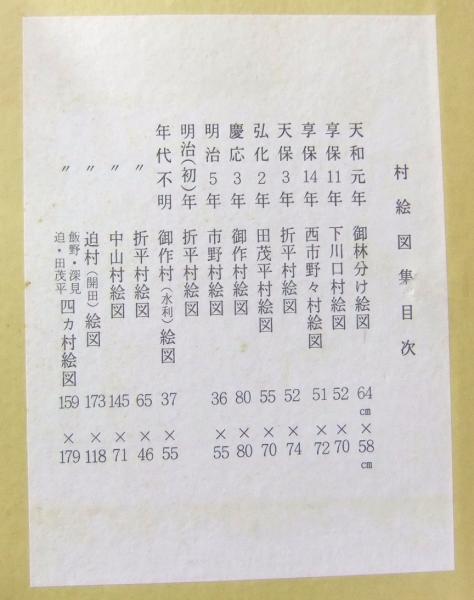 村絵図集目次
天和元年 御林分け絵図 64cm×58cm
享保11年 下川口村絵図 52×70
享保14年 西市野々村絵図 51×72
天保3年 折平村絵図 52×74
弘化2年 田茂平村絵図 55×70
慶応3年 御作村絵図 80×80
明治5年 市野村絵図 36×55
明治(初)年 折平村絵図
年代不明 御作村(水利)絵図 37×55
〃 折平村絵図 65×46
〃 中山村絵図 145×71
〃 迫村(開田)絵図 173×118
〃 飯野・深見迫・田茂平四カ村絵図 159×179